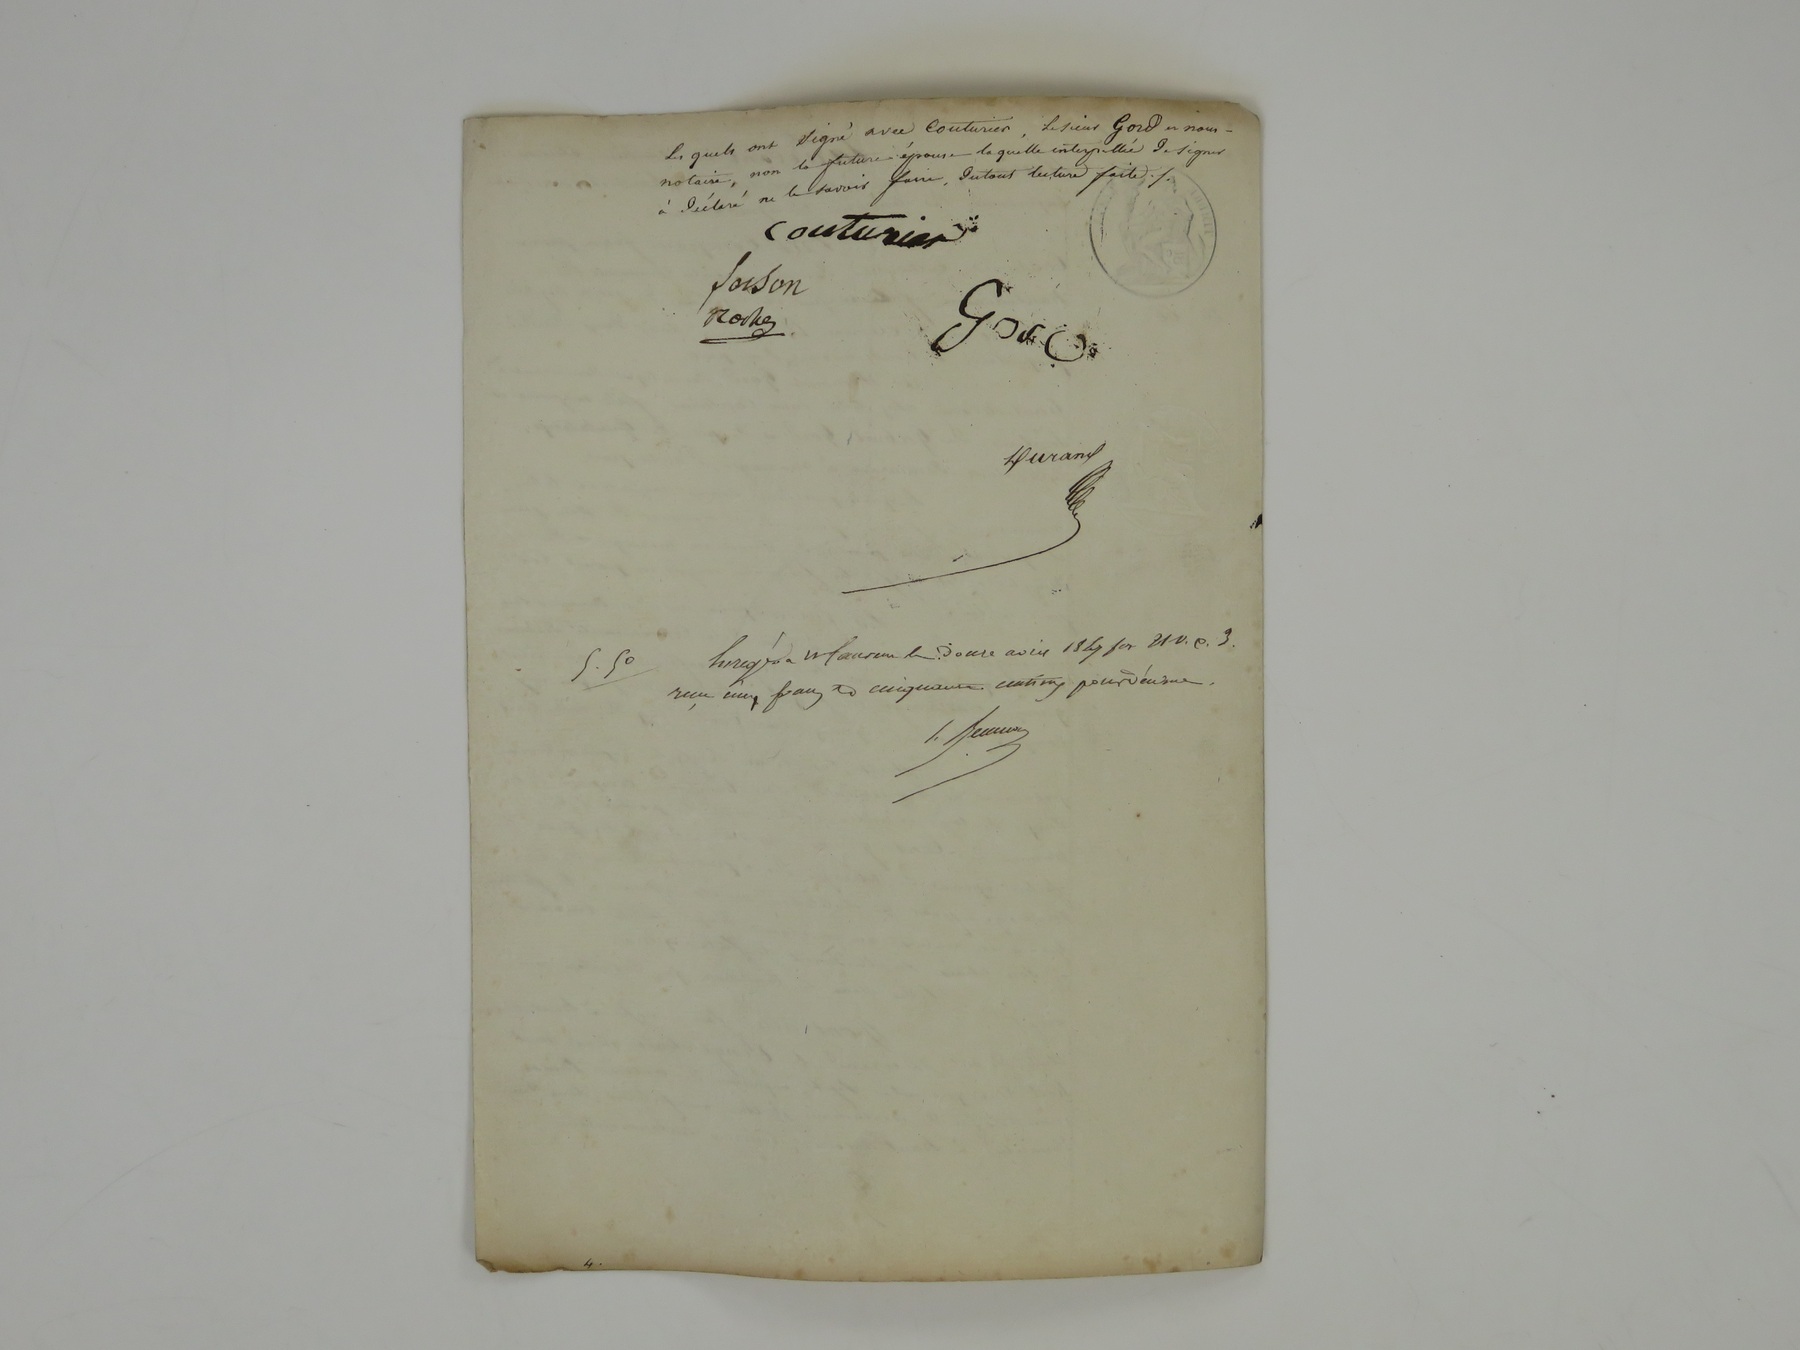 Lesquels ont signé avec Couturier, le sieur Gord et nous-
notaire, non la future épouse laquelle interpellée de signer
à déclaré ne le savoir faire, du tout lecture faite ./.
Couturier
foison
Gord
Durand
5.50
le douze 1847 f. v. c. 3.
reçu cinq francs cinquante centimes pour décime.
4.